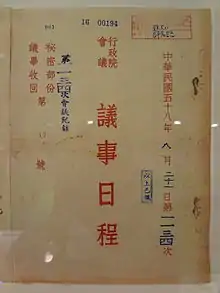 16 00194
中華民國五十八年八月二十一日第一一三四次
行政院
會議
議事日程
第一一三四次會議紀錄
秘密部份第 號
議事收回
以上已種